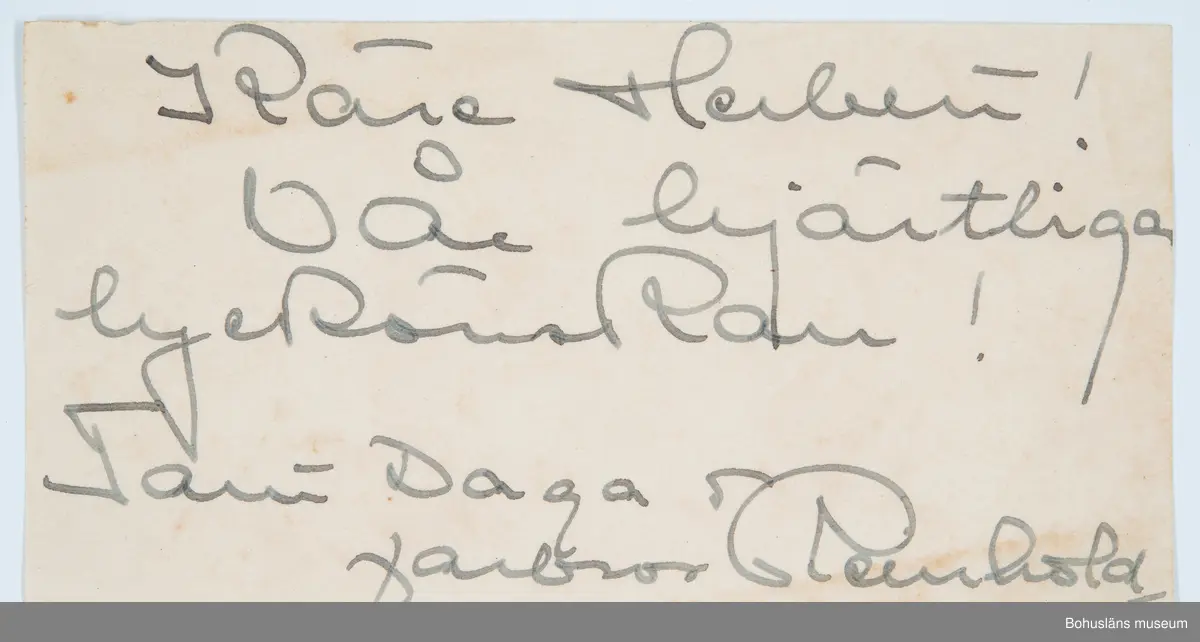 Käre Herbert!
Vår hjärtliga
lyckönskan!
Tant Daga o
farbror Reinhold
Bohusläns museum